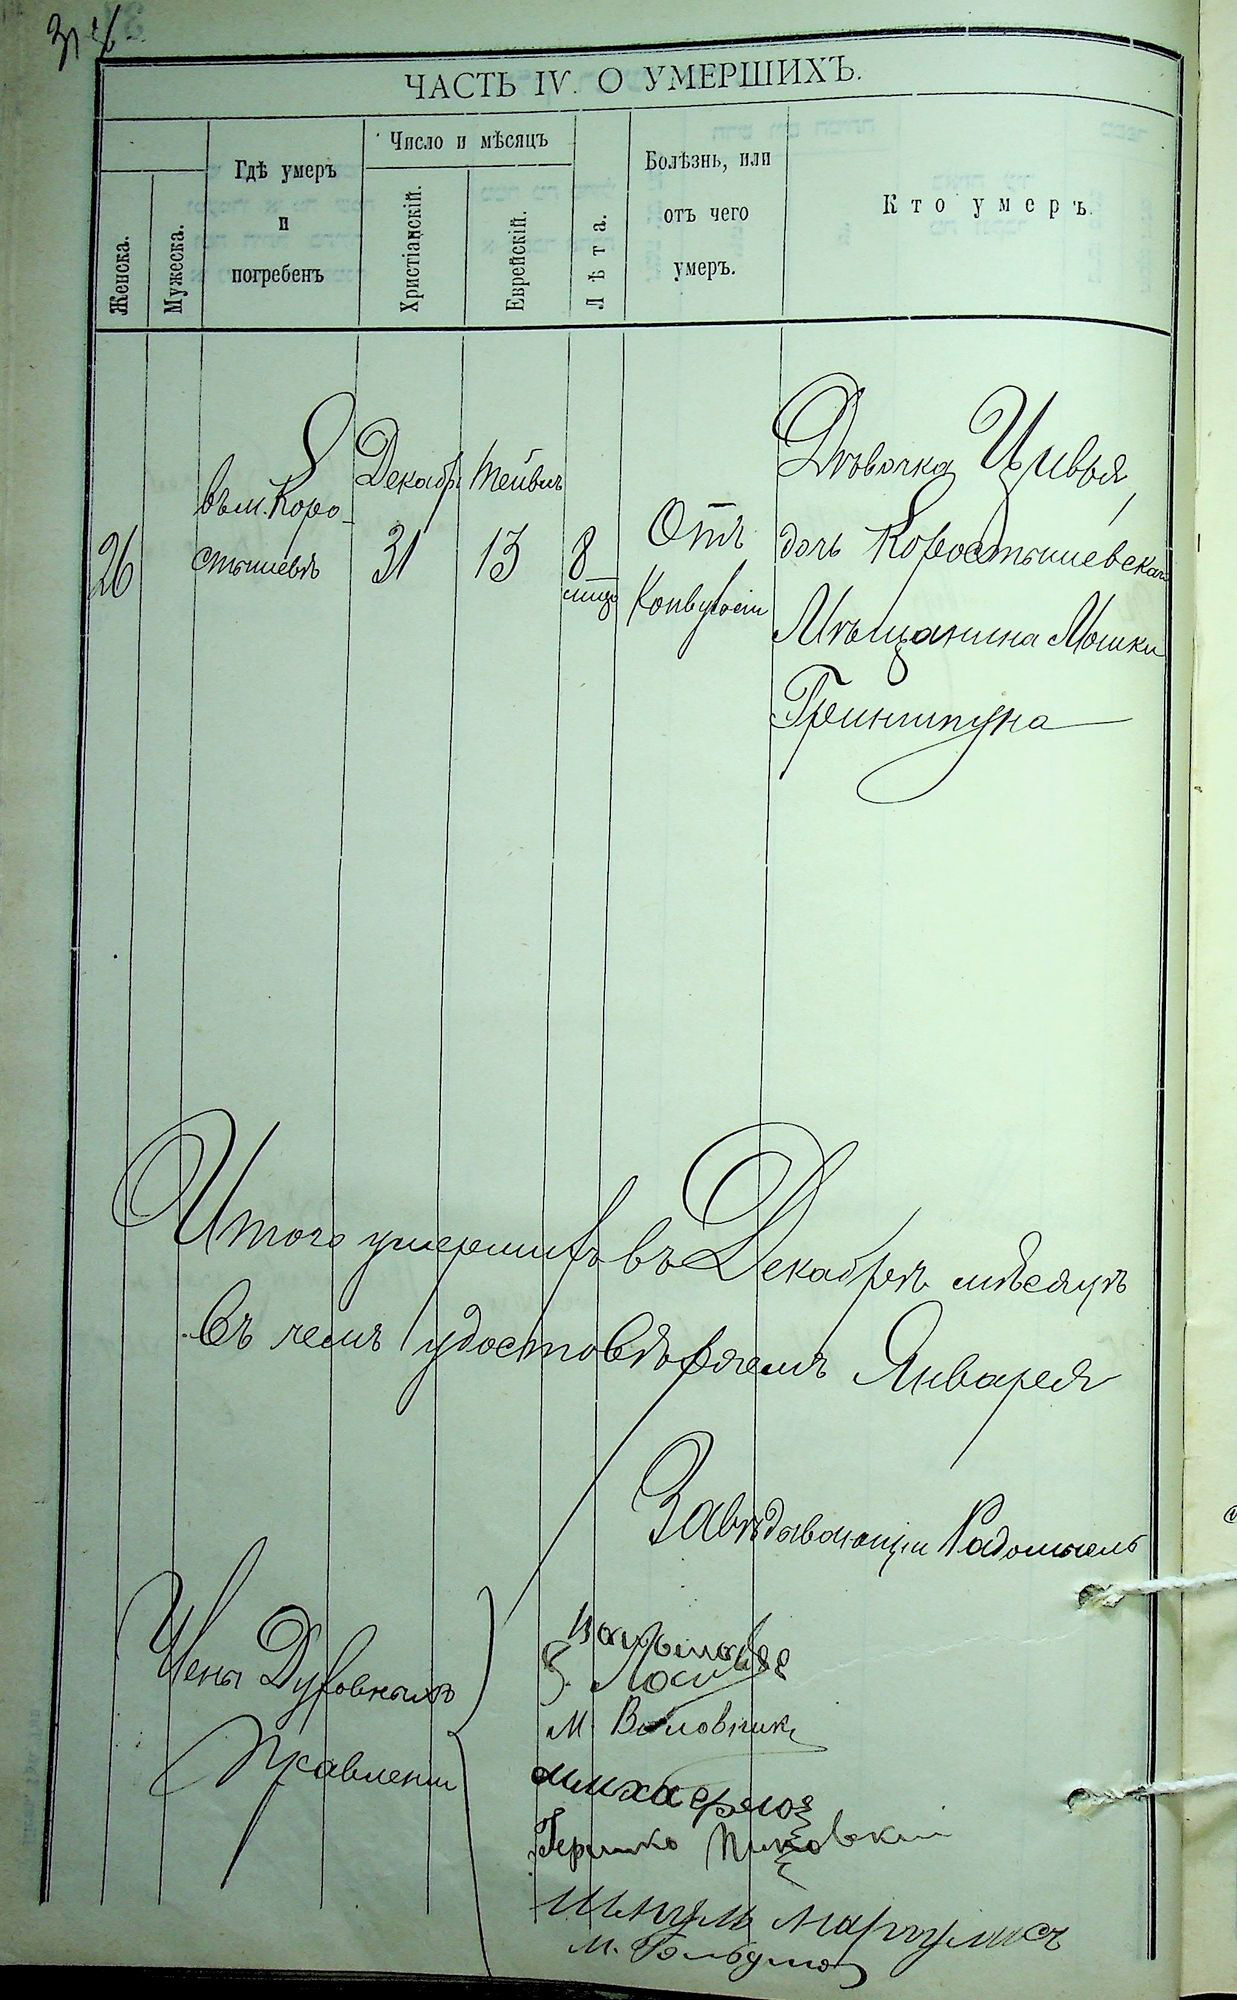 ЧАСТЬ IV. О УМЕРШИХЪ.
Женска.
Мужеска.
Гдѣ умеръ
и
погребенъ
Число и мѣсяцъ
Христіанскій.
Еврейскій.
Лѣта.
Болѣзнь, или
отъ чего
умеръ.
Кто умеръ.
26
въ м. Коро-
стышевѣ
Декабр.
31
Тейвисъ
13
8
мѣц.
Отъ
Конвульсіи
Дѣвочка Цивья,
дочь Коростышевскаго
Мѣщанина Мошки
Гриншпуна
Итого умершихъ въ Декабрѣ мѣсяцѣ
Въ чемъ удостовѣряемъ Января
Завѣдывающій Радомысль
Члены Духовныхъ
Правленій
М. Воловник
Гершко
Маргулисъ
М.